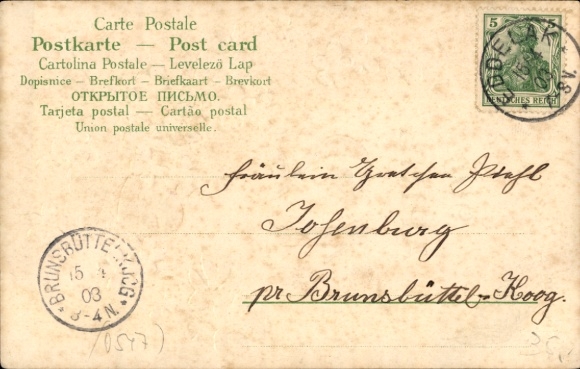 Carte Postale
Postkarte — Post card
Cartolina Postale — Levelező Lap
Dopisnice — Brefkort — Briefkaart — Brevkort
ОТКРЫТОЕ ПИСЬМО.
Tarjeta postal — Cartão postal
Union postale universelle.
5 5
EDDELAK
15
03
8 V.
DEUTSCHES REICH
Fräulein Gretchen Piehl
Josenburg
pr Brunsbüttel-Koog.
BRUNSBÜTTELKOOG
15 4
03
3-4 N.
(0547)